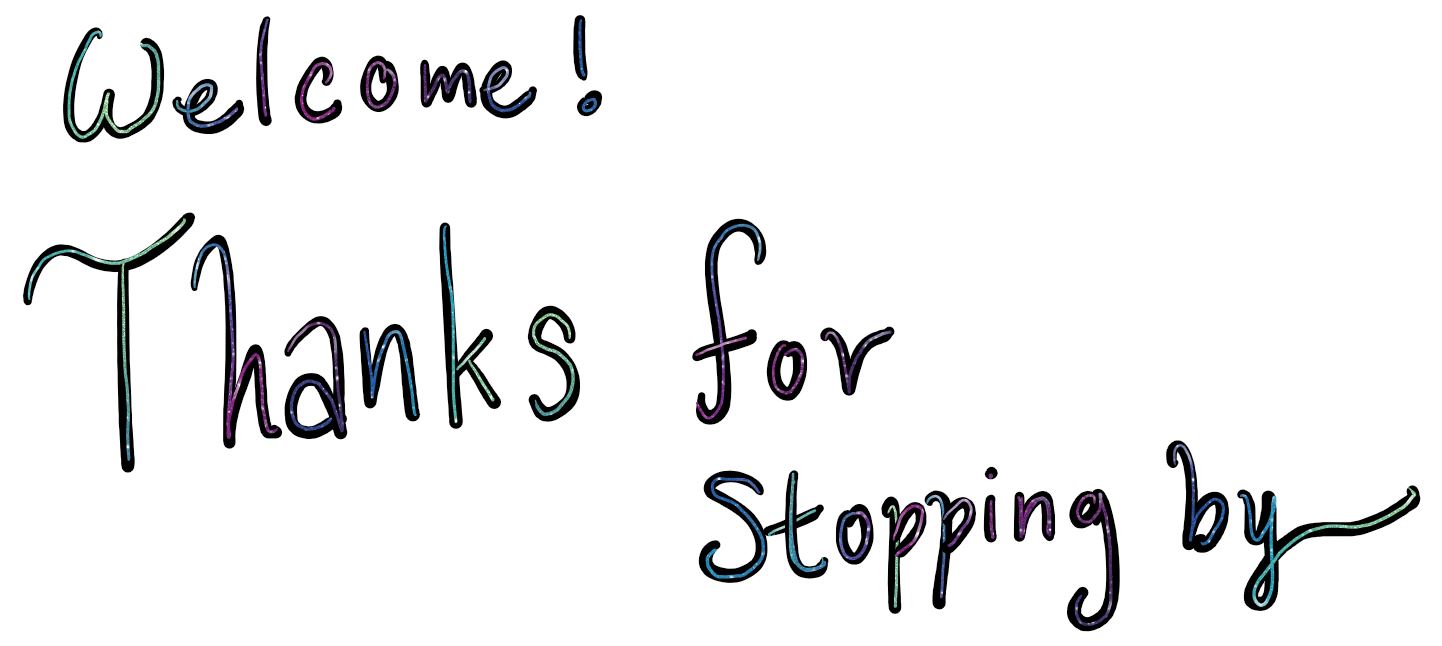 Welcome!
Thanks for
Stopping by